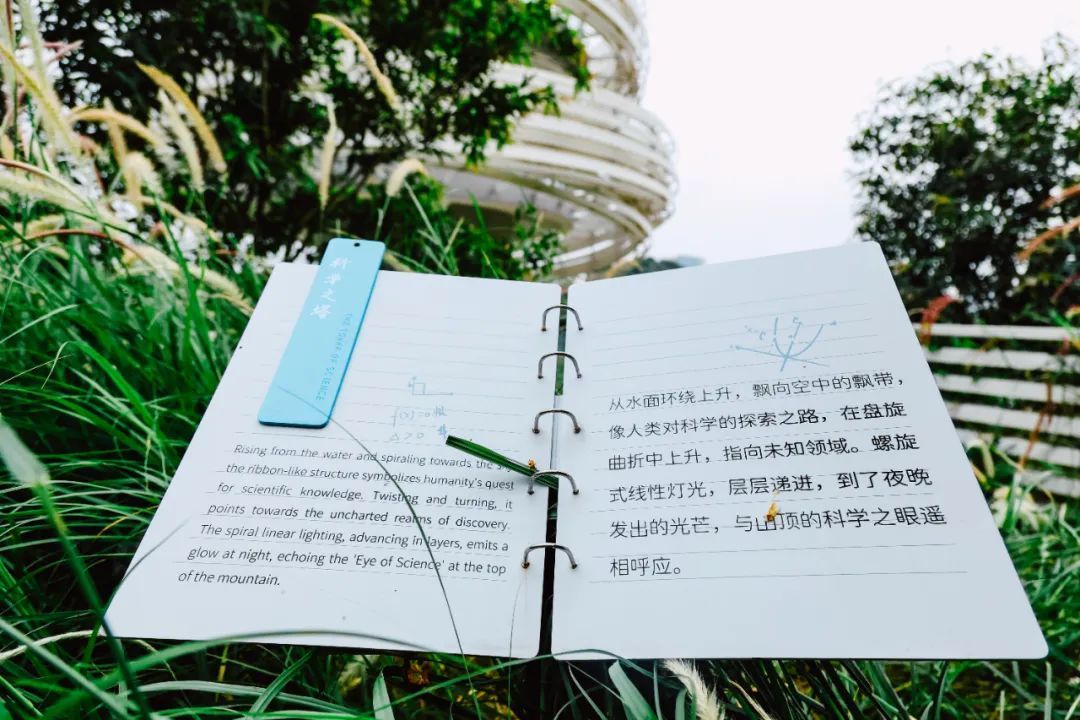 科学之塔
THE TOWER OF SCIENCE
f(x)=0
Δ>0
Rising from the water and spiraling towards the
the ribbon-like structure symbolizes humanity's quest
for scientific knowledge. Twisting and turning, it
points towards the uncharted realms of discovery.
The spiral linear lighting, advancing in layers, emits a
glow at night, echoing the 'Eye of Science' at the top
of the mountain.
从水面环绕上升，飘向空中的飘带，
像人类对科学的探索之路，在盘旋
曲折中上升，指向未知领域。螺旋
式线性灯光，层层递进，到了夜晚
发出的光芒，与山顶的科学之眼遥
相呼应。